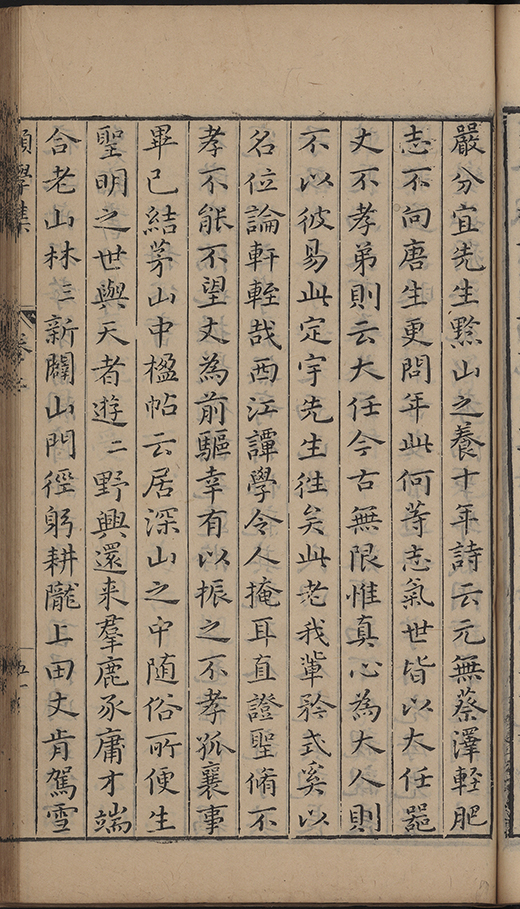 嚴分宜先生黟山之養十年詩云元無蔡澤輕肥
志不向唐生更問年此何等志氣世皆以大任噐
丈不孝弟則云大任今古無限惟真心為大人則
不以彼易此定宇先生徃矣此老我軰矜式奚以
名位論軒輊哉西江譚學令人掩耳直證聖脩不
孝不能不望丈為前驅幸有以振之不孝孤襄事
畢已結茅山中楹帖云居深山之中随俗所便生
聖明之世與天者遊二野興還来羣鹿豕庸才端
合老山林三新闢山門徑躬耕隴上田丈肯駕雪
願學集